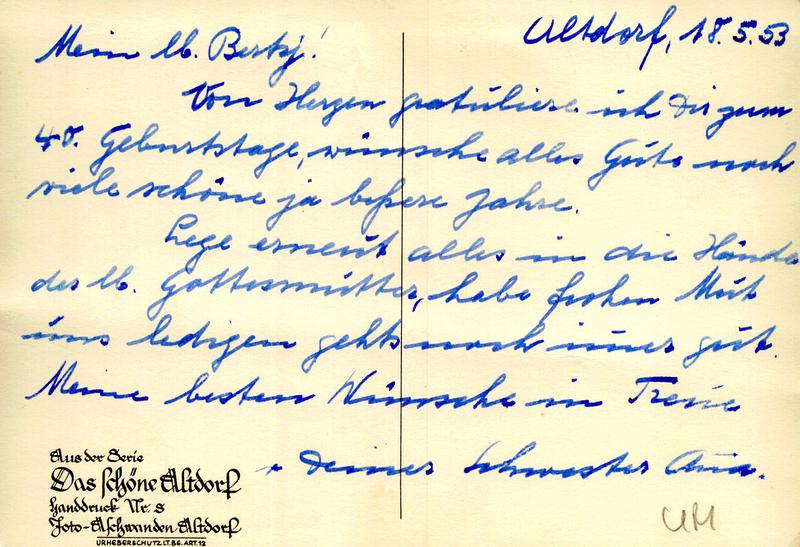 Altdorf, 18.5.53
Mein lb. Bertÿ!
Von Herzen gratuliere ich Dir zum
40. Geburtstage, wünsche alles Gute noch
viele schöne ja beßere Jahre.
Lege erneut alles in die Hände
der lb. Gottesmutter, habe frohen Mut
uns ledigen gehts noch imer gut.
Meine besten Wünsche in Treue
Deiner Schwester
Aus der Serie
Das schöne Altdorf
Handdruck Nr. 8
Foto-Aschwanden Altdorf
URHEBERSCHUTZ LT. BE. ART. 12